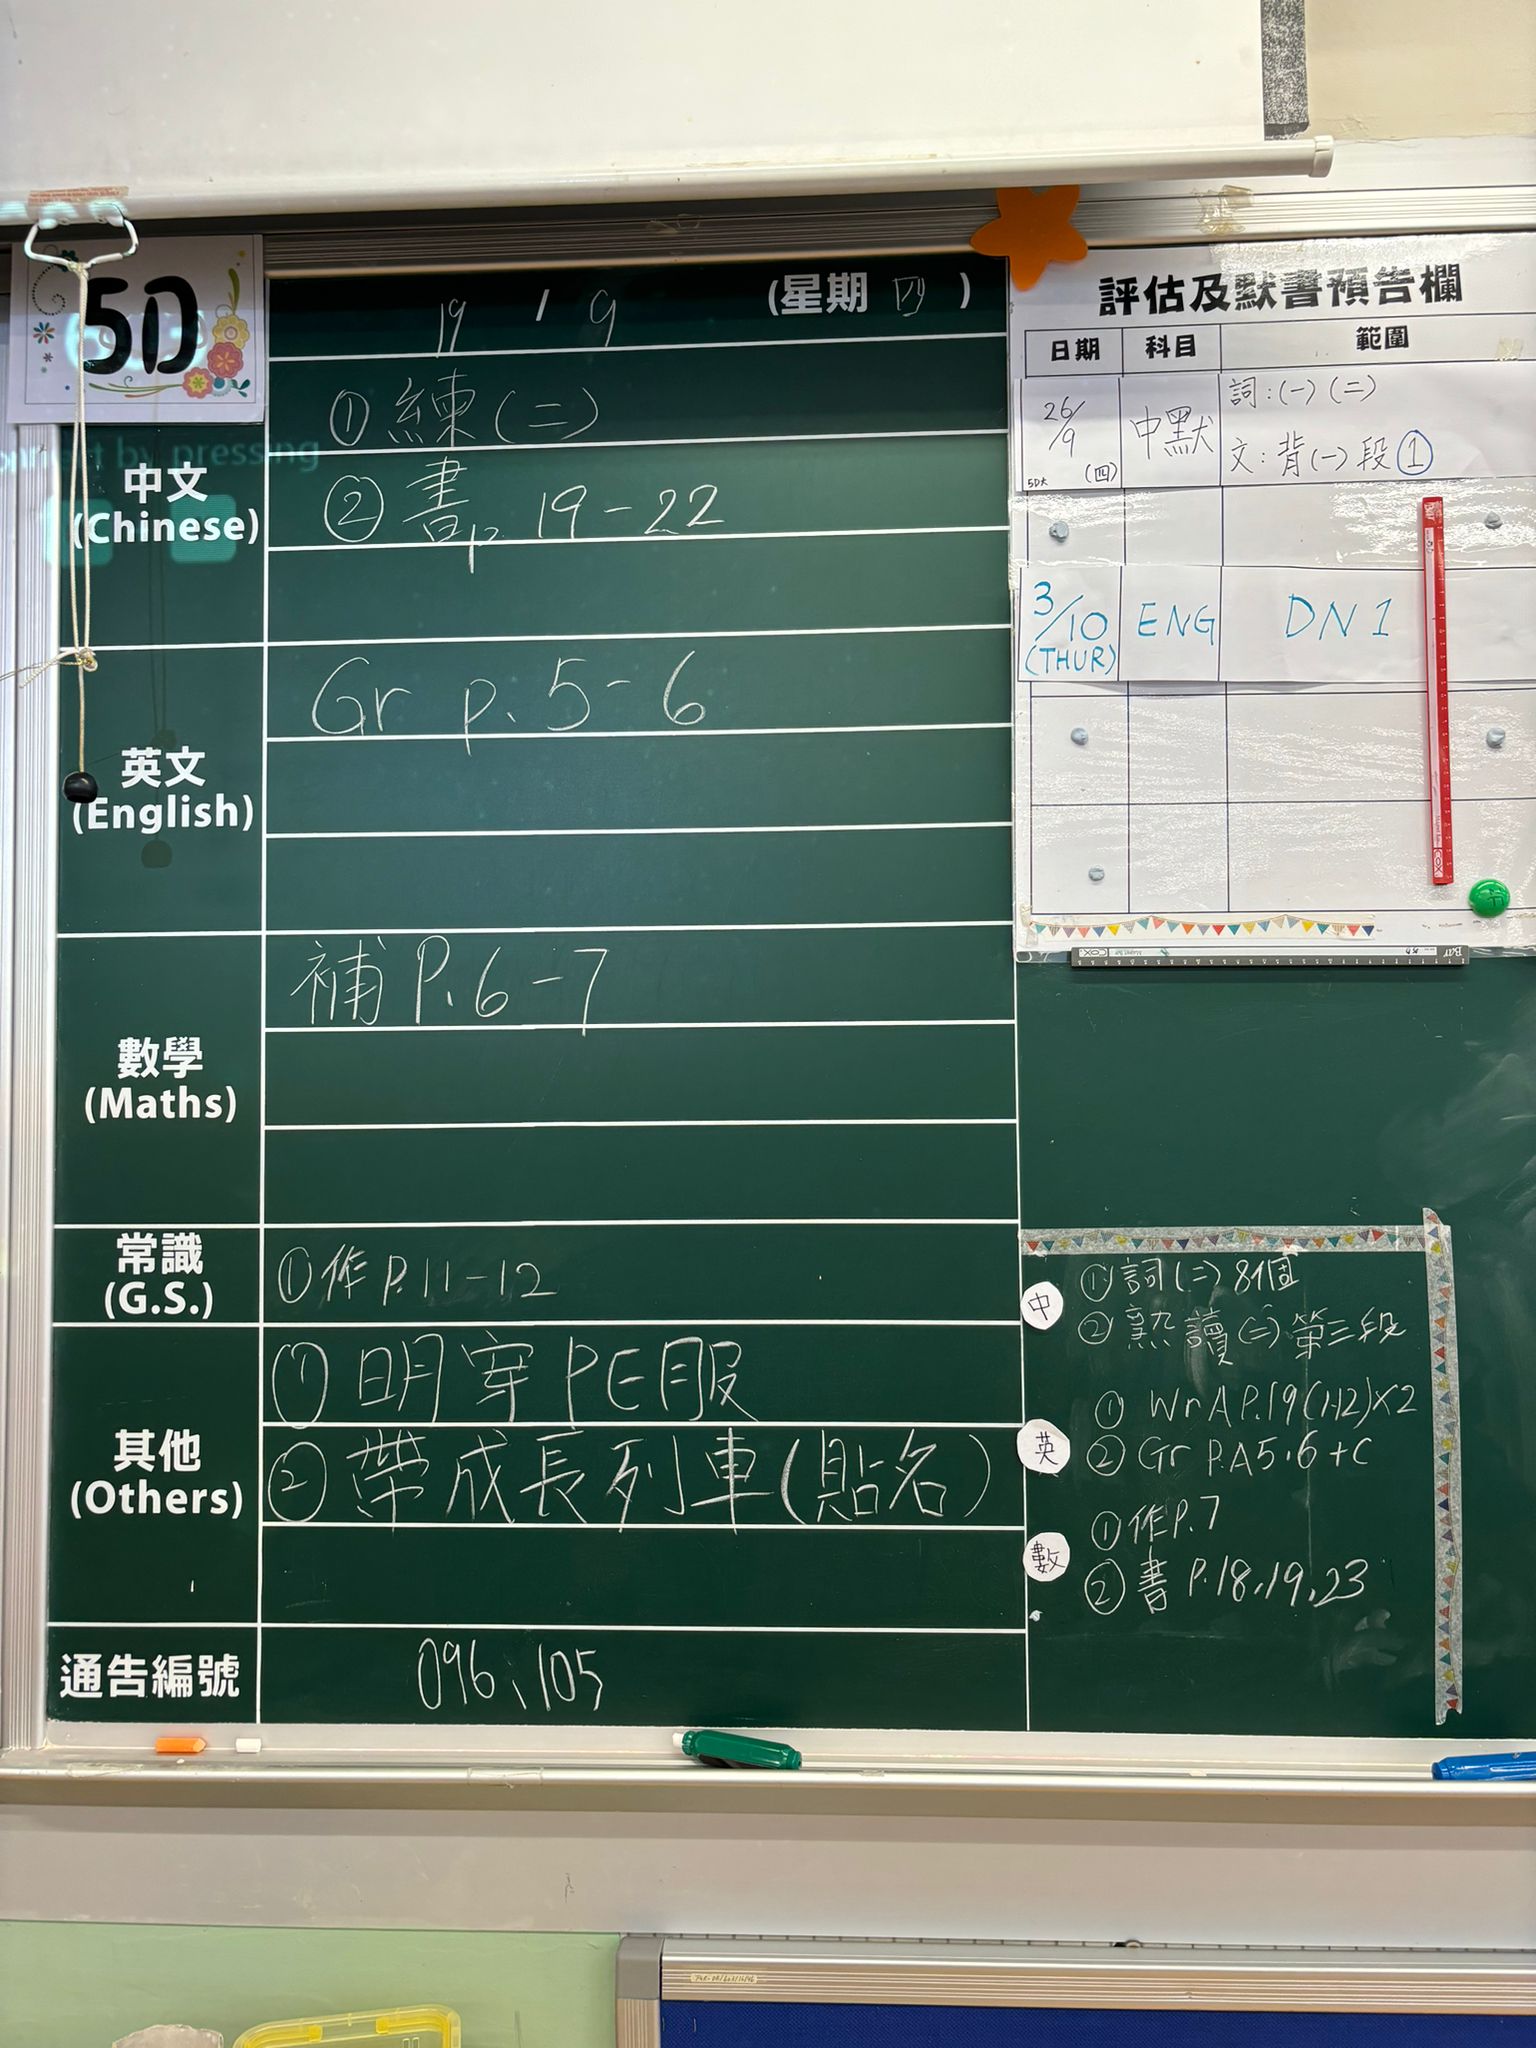 5D
19 / 9 (星期四)
中文
(Chinese)
① 練(二)
② 書p. 19-22
英文
(English)
Gr p. 5-6
數學
(Maths)
補 P. 6-7
常識
(G.S.)
①作 P. 11-12
其他
(Others)
① 明穿PE服
② 帶成長列車(貼名)
通告編號
096、105
評估及默書預告欄
日期 科目 範圍
26/9 (四) 中默 詞:(一)(二)
文:背(一)段①
3/10 (THUR) ENG DN 1
中
①詞(二) 8個
②熟讀(二)第三段
英
① Wr A P.19(1-12)×2
② Gr P.A5,6+C
數
① 作P.7
② 書 P.18,19,23